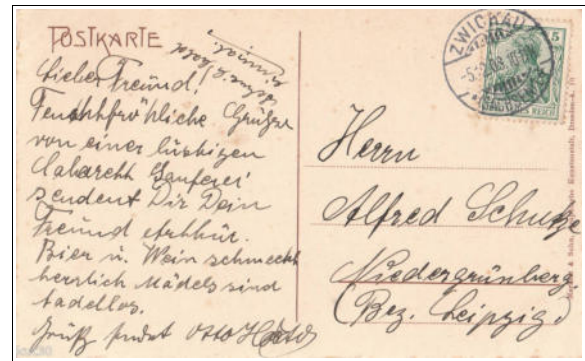 POSTKARTE
Lieber Freund!
Feuchtfröhliche Grüße
von einer lustigen
Cabarett Sauferei
sendent Dir Dein
Freund Arthur.
Bier u. Wein schmeckt
herrlich Mädels sind
tadellos.
Gruß sendet Otto
ZWICKAU
(SACHSEN)
5
Herrn
Alfred Schulze
Niedergrünberg
(Bez. Leipzig)